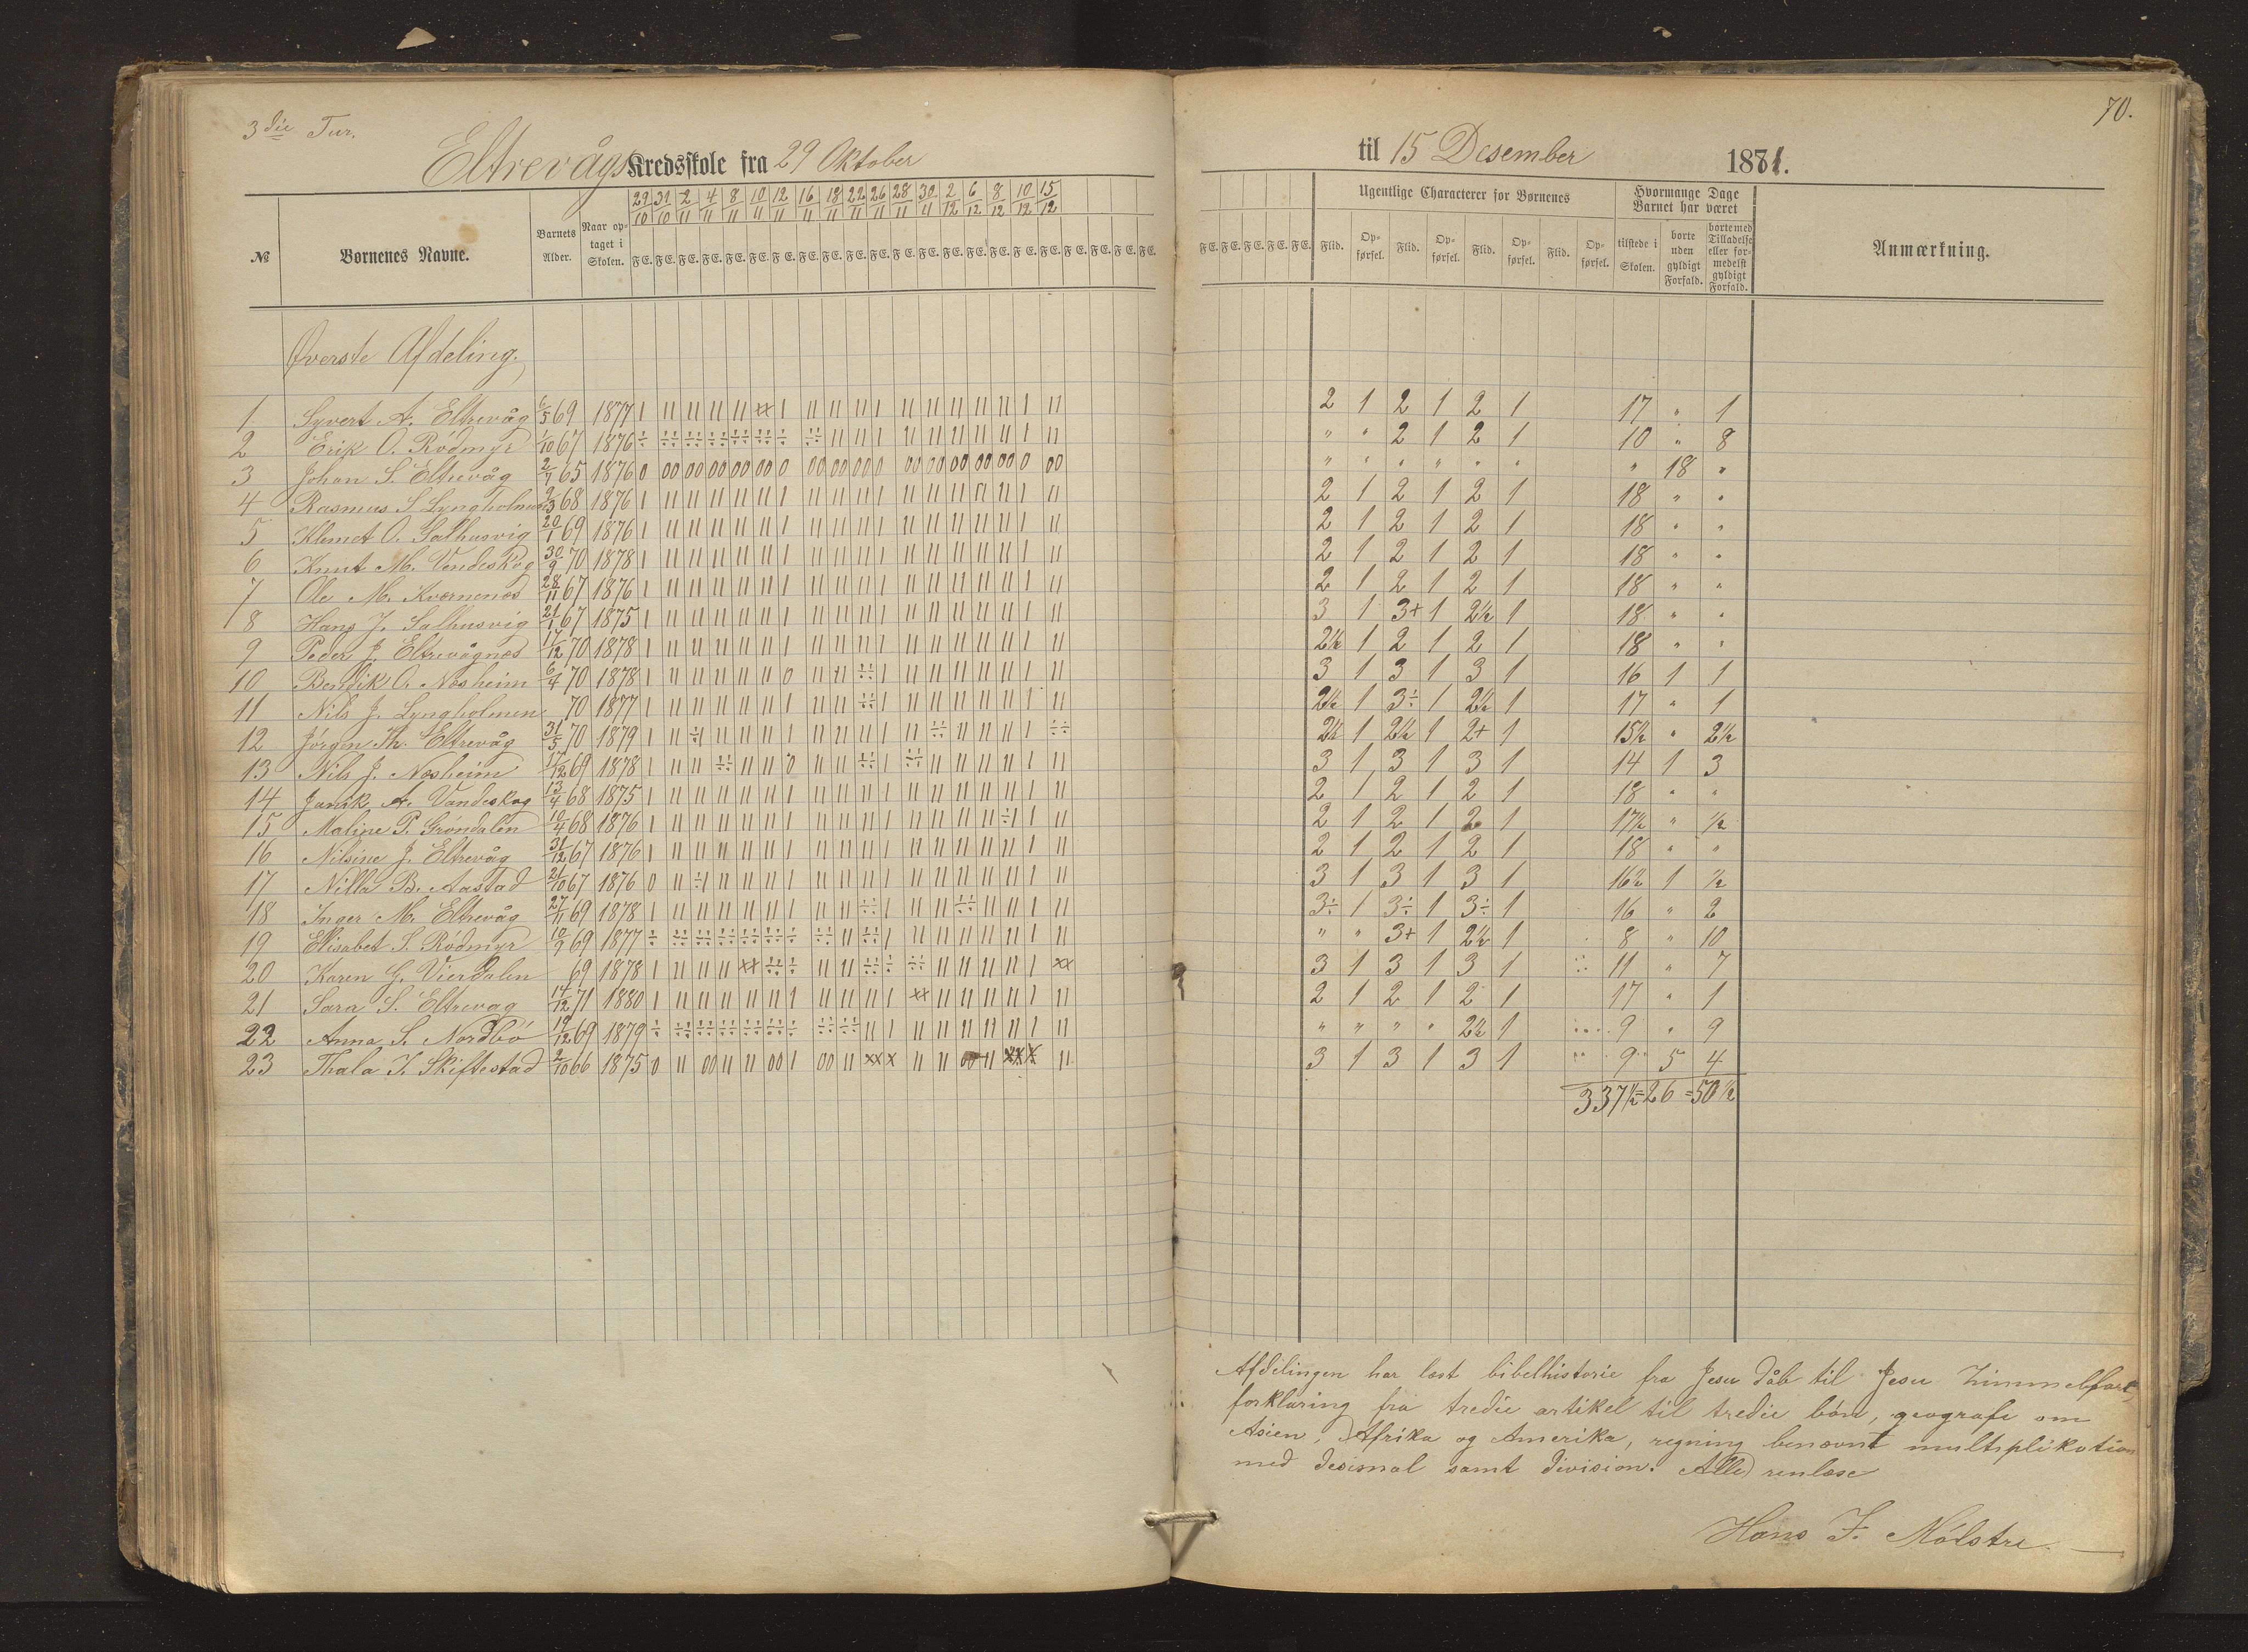 70.
3die Tur.
Eltrevågs Kredsskole fra 29 Oktober til 15 Desember 1881.
№ Børnenes Navne. Barnets Alder. Naar optaget i Skolen. 29/10 31/10 2/11 4/11 8/11 10/11 12/11 16/11 18/11 22/11 26/11 28/11 30/11 2/12 6/12 8/12 10/12 15/12
F.E. F.E. F.E. F.E. F.E. F.E. F.E. F.E. F.E. F.E. F.E. F.E. F.E. F.E. F.E. F.E. F.E. F.E. F.E. F.E. F.E. F.E.
F.E. F.E. F.E. F.E. F.E. Ugentlige Characterer for Børnenes Flid. Opførsel. Flid. Opførsel. Flid. Opførsel. Flid. Opførsel.
Hvormange Dage Barnet har været tilstede i Skolen. borte uden gyldigt Forfald. borte med Tilladelse eller formedelst gyldigt Forfald. Anmærkning.
Øverste Afdeling.
1 Syvert A. Eltrevåg 6/5 69 1877 2 1 2 1 2 1 17 " 1
2 Erik O. Rødmyr 1/10 67 1876 " " 2 1 2 1 10 " 8
3 Johan S. Eltrevåg 2/7 65 1876 " " " " " " " 18 "
4 Rasmus S Lyngholmen 2/3 68 1876 2 1 2 1 2 1 18 " "
5 Klemet O. Salhusvig 20/1 69 1876 2 1 2 1 2 1 18 " "
6 Knut M. Vendeskog 30/9 70 1878 2 1 2 1 2 1 18 " "
7 Ole M. Kvernenæs 28/11 67 1876 2 1 2 1 2 1 18 " "
8 Hans J. Salhusvig 21/1 67 1875 3 1 3+ 1 2½ 1 18 " "
9 Peder J. Eltrevågnæs 17/12 70 1878 2½ 1 2 1 2 1 18 " "
10 Bendik O. Næsheim 6/4 70 1878 3 1 3 1 3 1 16 1 1
11 Nils J. Lyngholmen 70 1877 2½ 1 3÷ 1 2½ 1 17 " 1
12 Jørgen Th. Eltrevåg 31/5 70 1879 2½ 1 2½ 1 2+ 1 15½ " 2½
13 Nils J. Næsheim 17/12 69 1878 3 1 3 1 3 1 14 1 3
14 Janik A. Vandeskog 13/4 68 1875 2 1 2 1 2 1 18 " "
15 Maline P. Grøndalen 10/4 68 1876 2 1 2 1 2 1 17½ " ½
16 Nilsine J. Eltrevåg 31/12 67 1876 2 1 2 1 2 1 18 " "
17 Nilla B. Aastad 21/10 67 1876 3 1 3 1 3 1 16½ 1 ½
18 Inger M. Eltrevåg 27/11 69 1878 3÷ 1 3÷ 1 3÷ 1 16 " 2
19 Elisabet S. Rødmyr 10/9 69 1877 " " 3+ 1 2½ 1 8 " 10
20 Karen G. Vierdalen 69 1878 3 1 3 1 3 1 11 " 7
21 Sara S. Eltrevag 14/12 71 1880 2 1 2 1 2 1 17 " 1
22 Anna S. Nordbø 19/12 69 1879 " " " " 2½ 1 9 " 9
23 Thala I. Skiftestad 2/10 66 1875 3 1 3 1 3 1 9 5 4
337½ = 26 = 50½
Afdelingen har læst bibelhistorie fra Jesu dåb til Jesu himmelfart,
forklaring fra tredie artikel til tredie bøn, geografi om
Asien, Afrika og Amerika, regning benævnt multiplikation
med desimal samt division. Alle renlæse
Hans J. Mølstre.